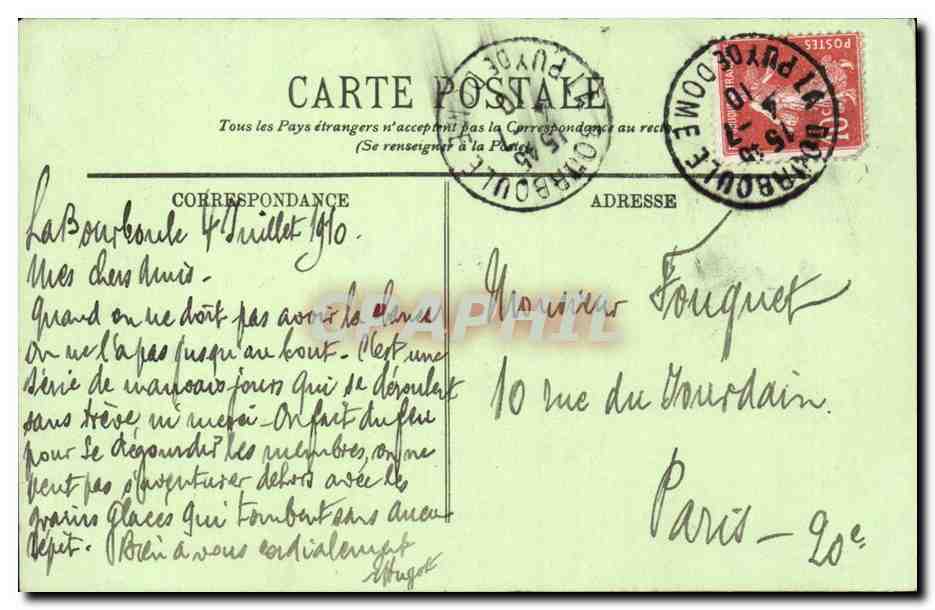 CARTE POSTALE
Tous les Pays étrangers n'acceptent pas la Correspondance au recto
(Se renseigner à la Poste)
CORRESPONDANCE
La Bourboule 4 Juillet 1910.
Mes chers Amis -
Quand on ne doit pas avoir la chance
on ne l'a pas jusqu'au bout - C'est une
série de mauvais jours qui se déroulent
sans trève ni merci - On fait du feu
pour se dégourdir les membres, on ne
peut pas s'aventurer dehors avec les
grains glacés qui tombent sans aucun
répit. Bien à vous cordialement
Hugot
ADRESSE
Monsieur Fouquet
10 rue du Jourdain.
Paris - 20e
LA BOURBOULE
PUY DE DOME
15 45
4 - 7
10
LA BOURBOULE
PUY DE DOME
15 45
POSTES
10c
CPAPHIL